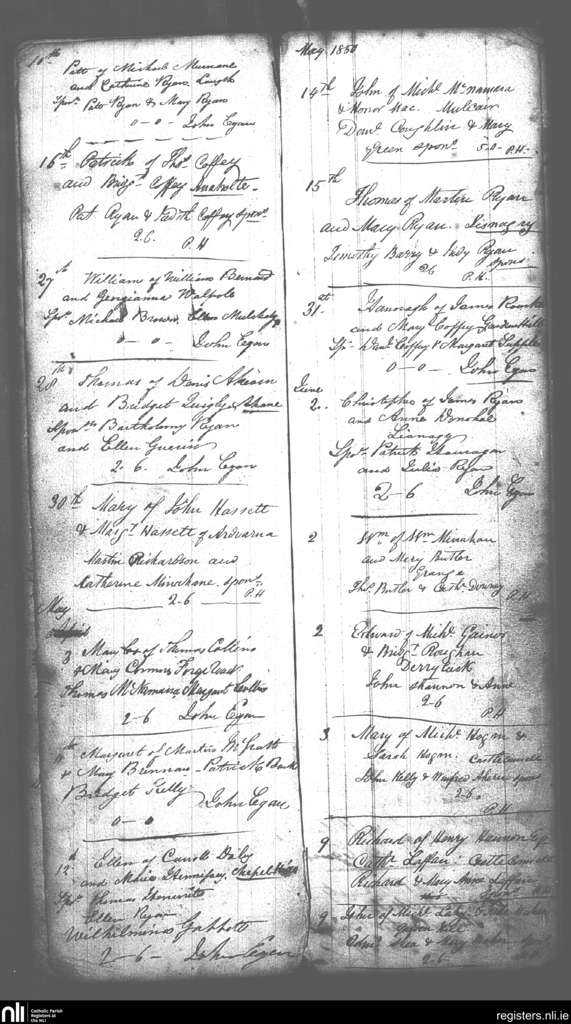 10th
Patt of Michael Murnane
and Catherine Ryan Lough
Spors. Patt Ryan & Mary Ryan
0 - 0 - John Egan
16th Patrick of Thos. Coffey
and Bridgt. Coffey
Pat Ryan & Judth Coffey Spors.
2.6. P.H
27th William of William Bennard
and Georgianna Walpole
Sprs. Michael Brown Ellen
0 - 0 - John Egan
28th Thomas of Denis Ahearn
and Bridget Quigley Ahane
Sponrs. Bartholomy Ryan
and Ellen Guerin
2 - 6. John Egan
30th Mary of John Hassett
& Margt. Hassett of Ardvarna
Martin Richardson and
Katherine Minahane. Sponrs.
2-6 P.H
May
3 Mary of Thomas Collins
& Mary Connors
Thomas McNamara Margaret Collins
2 - 6 John Egan
Margaret of Martin McGrath
& Mary Brennan - Patrick
Bridget Kelly
John Egan
0 - 0
12th Ellen of Carroll Daly
and Maria Hennifsey, Chapel Hill
Sprs. Thomas
Ellen Ryan
Wilhelmina Gabbott
2 - 6 - John Egan
May 1850
14th John of Michl. McNamara
& Honor Mac. Mulcair
Danl. Coughlin & Mary
Green Sponrs. 5-0- P.H-
15th
Thomas of Martin Ryan
and Mary Ryan. Lisnagry
Timothy Barry & Judy Ryan
Spors.
2.6 P.H.
31st Hanoragh of James Rourke
and Mary Coffey Garden Hill
Sprs. Danl. Coffey & Margaret
0 - 0 - John Egan
June
2. Christopher of James Ryan
and Anne Donohoe
Lisnagry
Sprs. Patrick
and Julia Ryan
2 - 6 John Egan
2 Wm. of Wm. Minahan
and Mary Butler
Grange
Thos. Butler & Cathn. Downey
P.H
2 Edward of Michl. Gainor
& Bridgt. Roughan
Derrytusk
John Shannon & Anne
2-6
P.H
3 Mary of Michl. Hogan &
Sarah Hogan. Castleconnell
John Kelly & Winifred Ahern Spors
2-6
P.H
9 Richard of Henry Hannon Esq
Cathn. Laffan. Castleconnell
Richard & Mary Anne Laffan
9 John of Michl.
& Mary
2-6
nli
Catholic Parish
Registers at
the NLI
registers.nli.ie